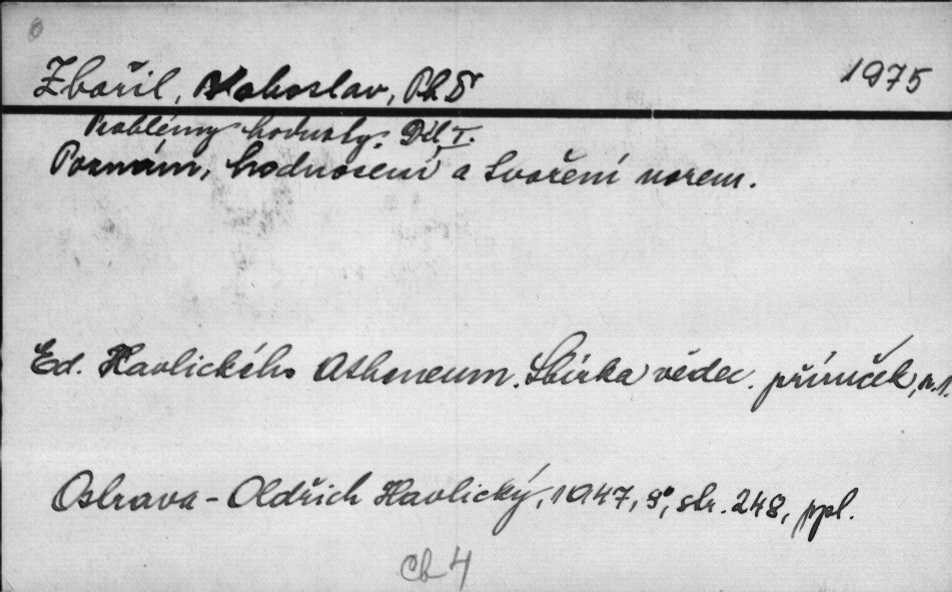 Zbořil, Blahoslav, PhD 1975
Problémy hodnoty. Díl I.
Poznání, hodnocení a tvoření norem.
Ed. Havlického Atheneum. Sbírka vědec. příruček, n.1.
Ostrava - Oldřich Havlický, 1947, 8°, str. 248, ppl.
Cb 4